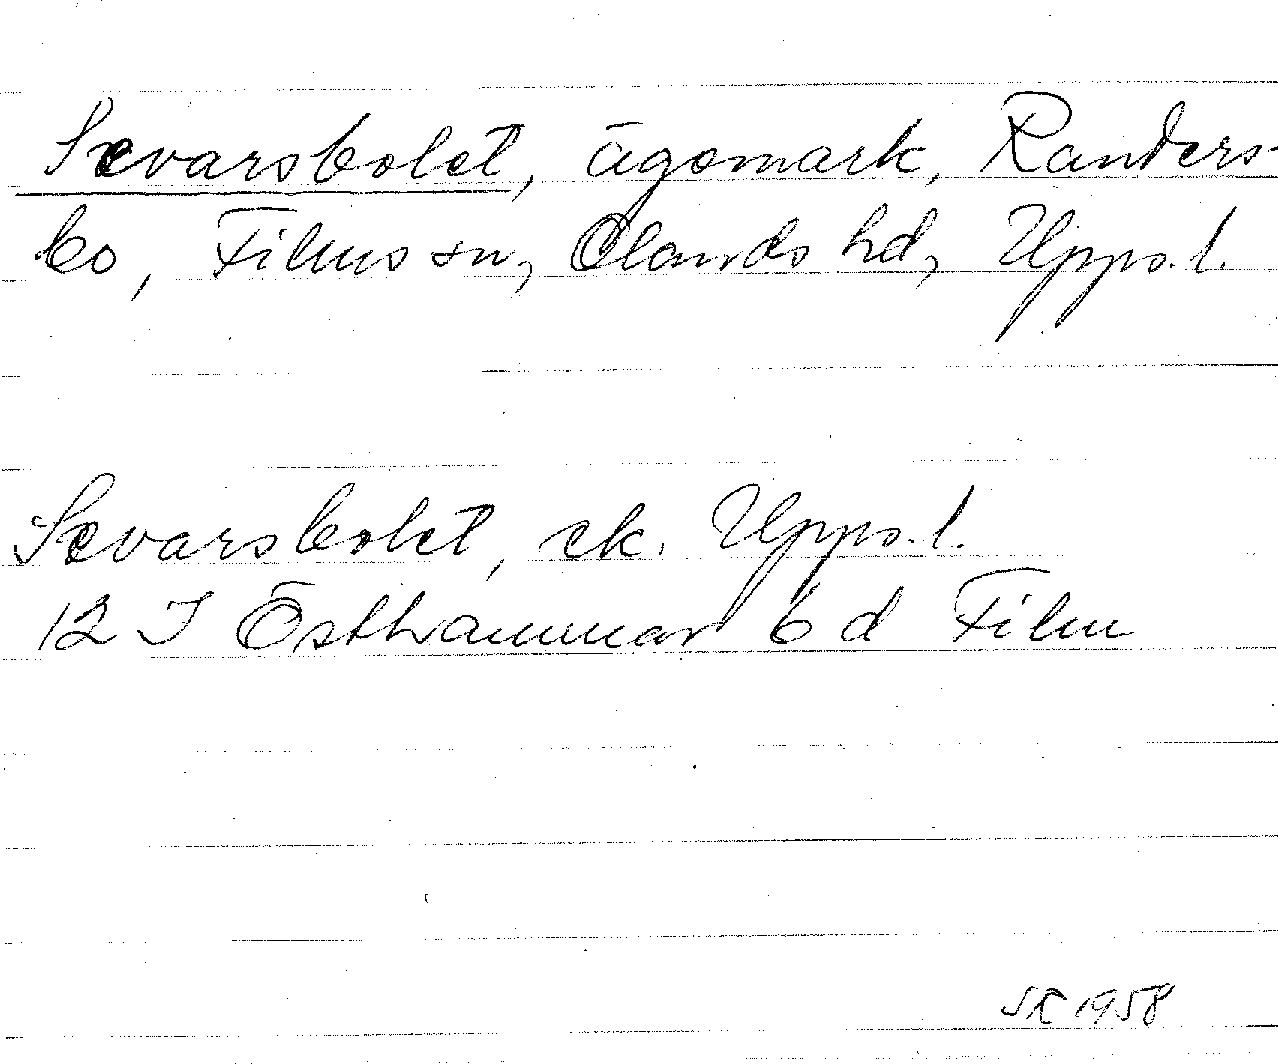 Sevarsbolet, ägomark, Randers-
bo, Films sn, Olands hd, Upps. l.
Sevarsbolet, ek. Upps. l.
12 I Östhammar 6 d Film
SR 1958